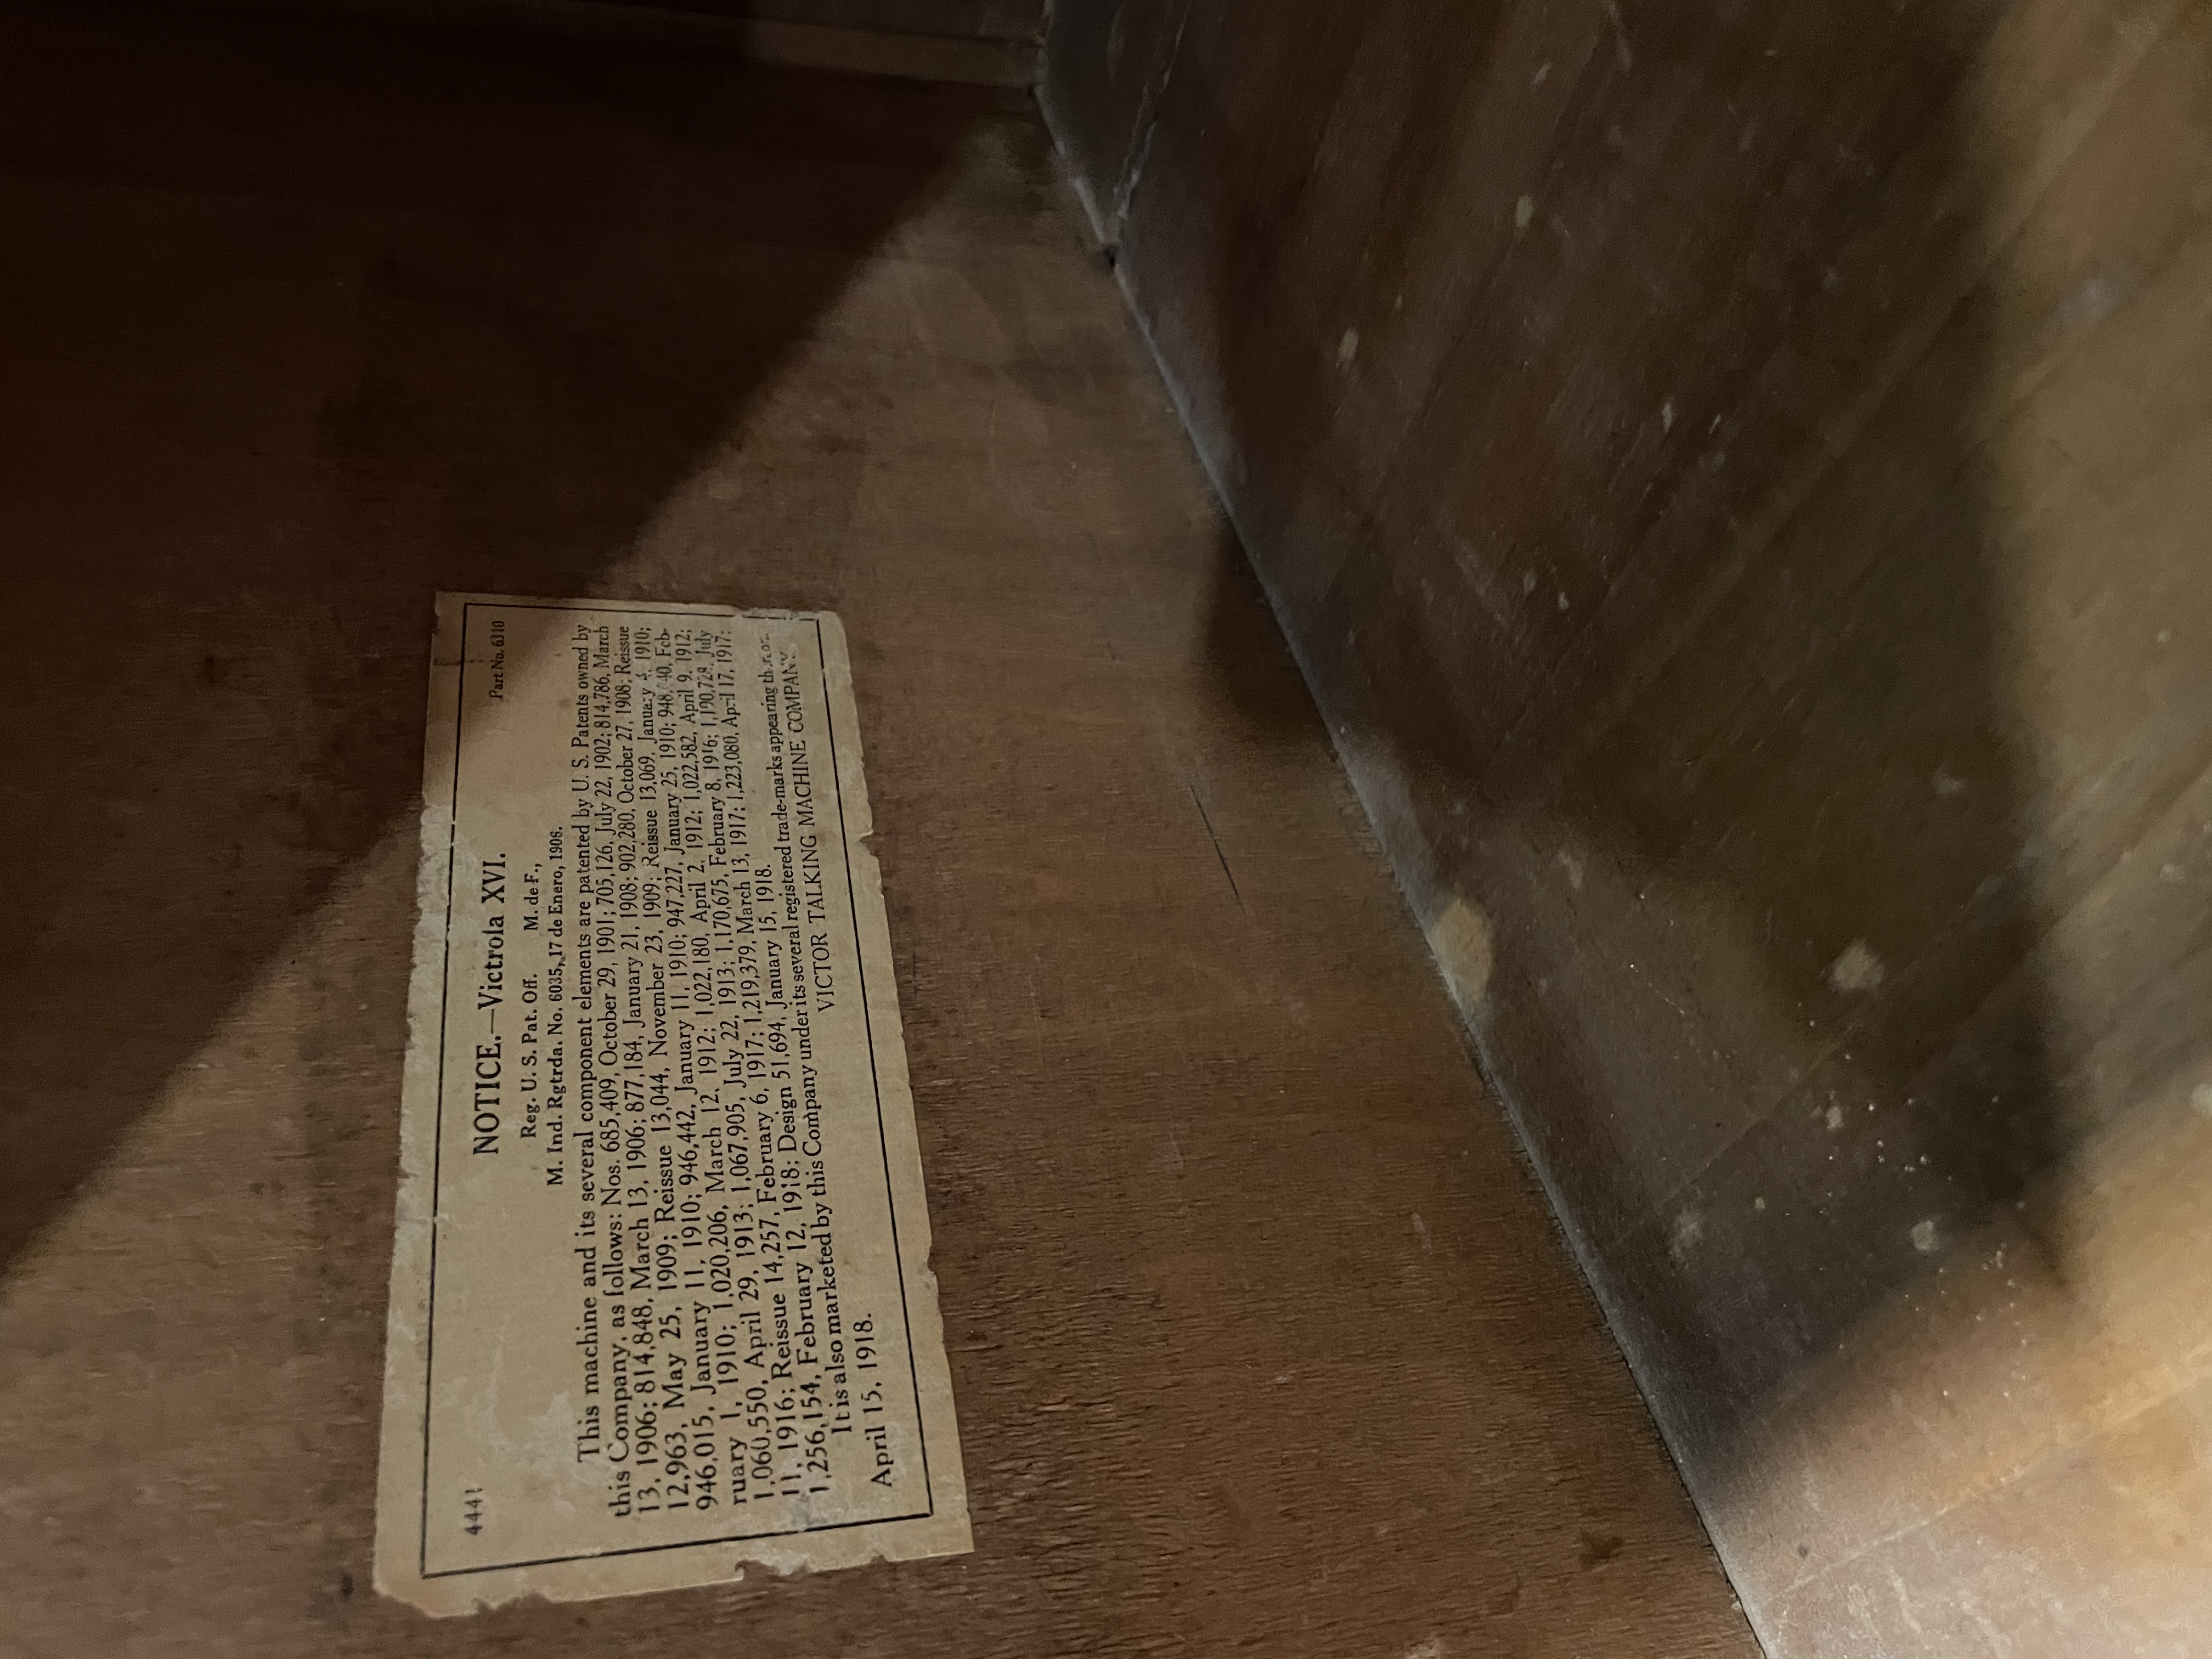 4441
Part No. 6310
NOTICE.—Victrola XVI.
Reg. U. S. Pat. Off. M. de F.,
M. Ind. Rgtrda. No. 6035, 17 de Enero, 1906.
This machine and its several component elements are patented by U. S. Patents owned by
this Company, as follows: Nos. 685,409, October 29, 1901; 705,126, July 22, 1902; 814,786, March
13, 1906; 814,848, March 13, 1906; 877,184, January 21, 1908; 902,280, October 27, 1908; Reissue
12,963, May 25, 1909; Reissue 13,044, November 23, 1909; Reissue 13,069, January 1910;
946,015, January 11, 1910; 946,442, January 11, 1910; 947,227, January 25, 1910; Feb-
ruary 1, 1910; 1,020,206, March 12, 1912; 1,022,180, April 2, 1912; 1,022,582, April 9, 1912;
1,060,550, April 29, 1913; 1,067,905, July 22, 1913; 1,170,675, February 8, 1916; 1,190,728, July
11, 1916; Reissue 14,257, February 6, 1917; 1,219,379, March 13, 1917; 1,223,080, April 17, 1917;
1,256,154, February 12, 1918; Design 51,694, January 15, 1918.
It is also marketed by this Company under its several registered trade-marks appearing
April 15, 1918. VICTOR TALKING MACHINE COMPANY.